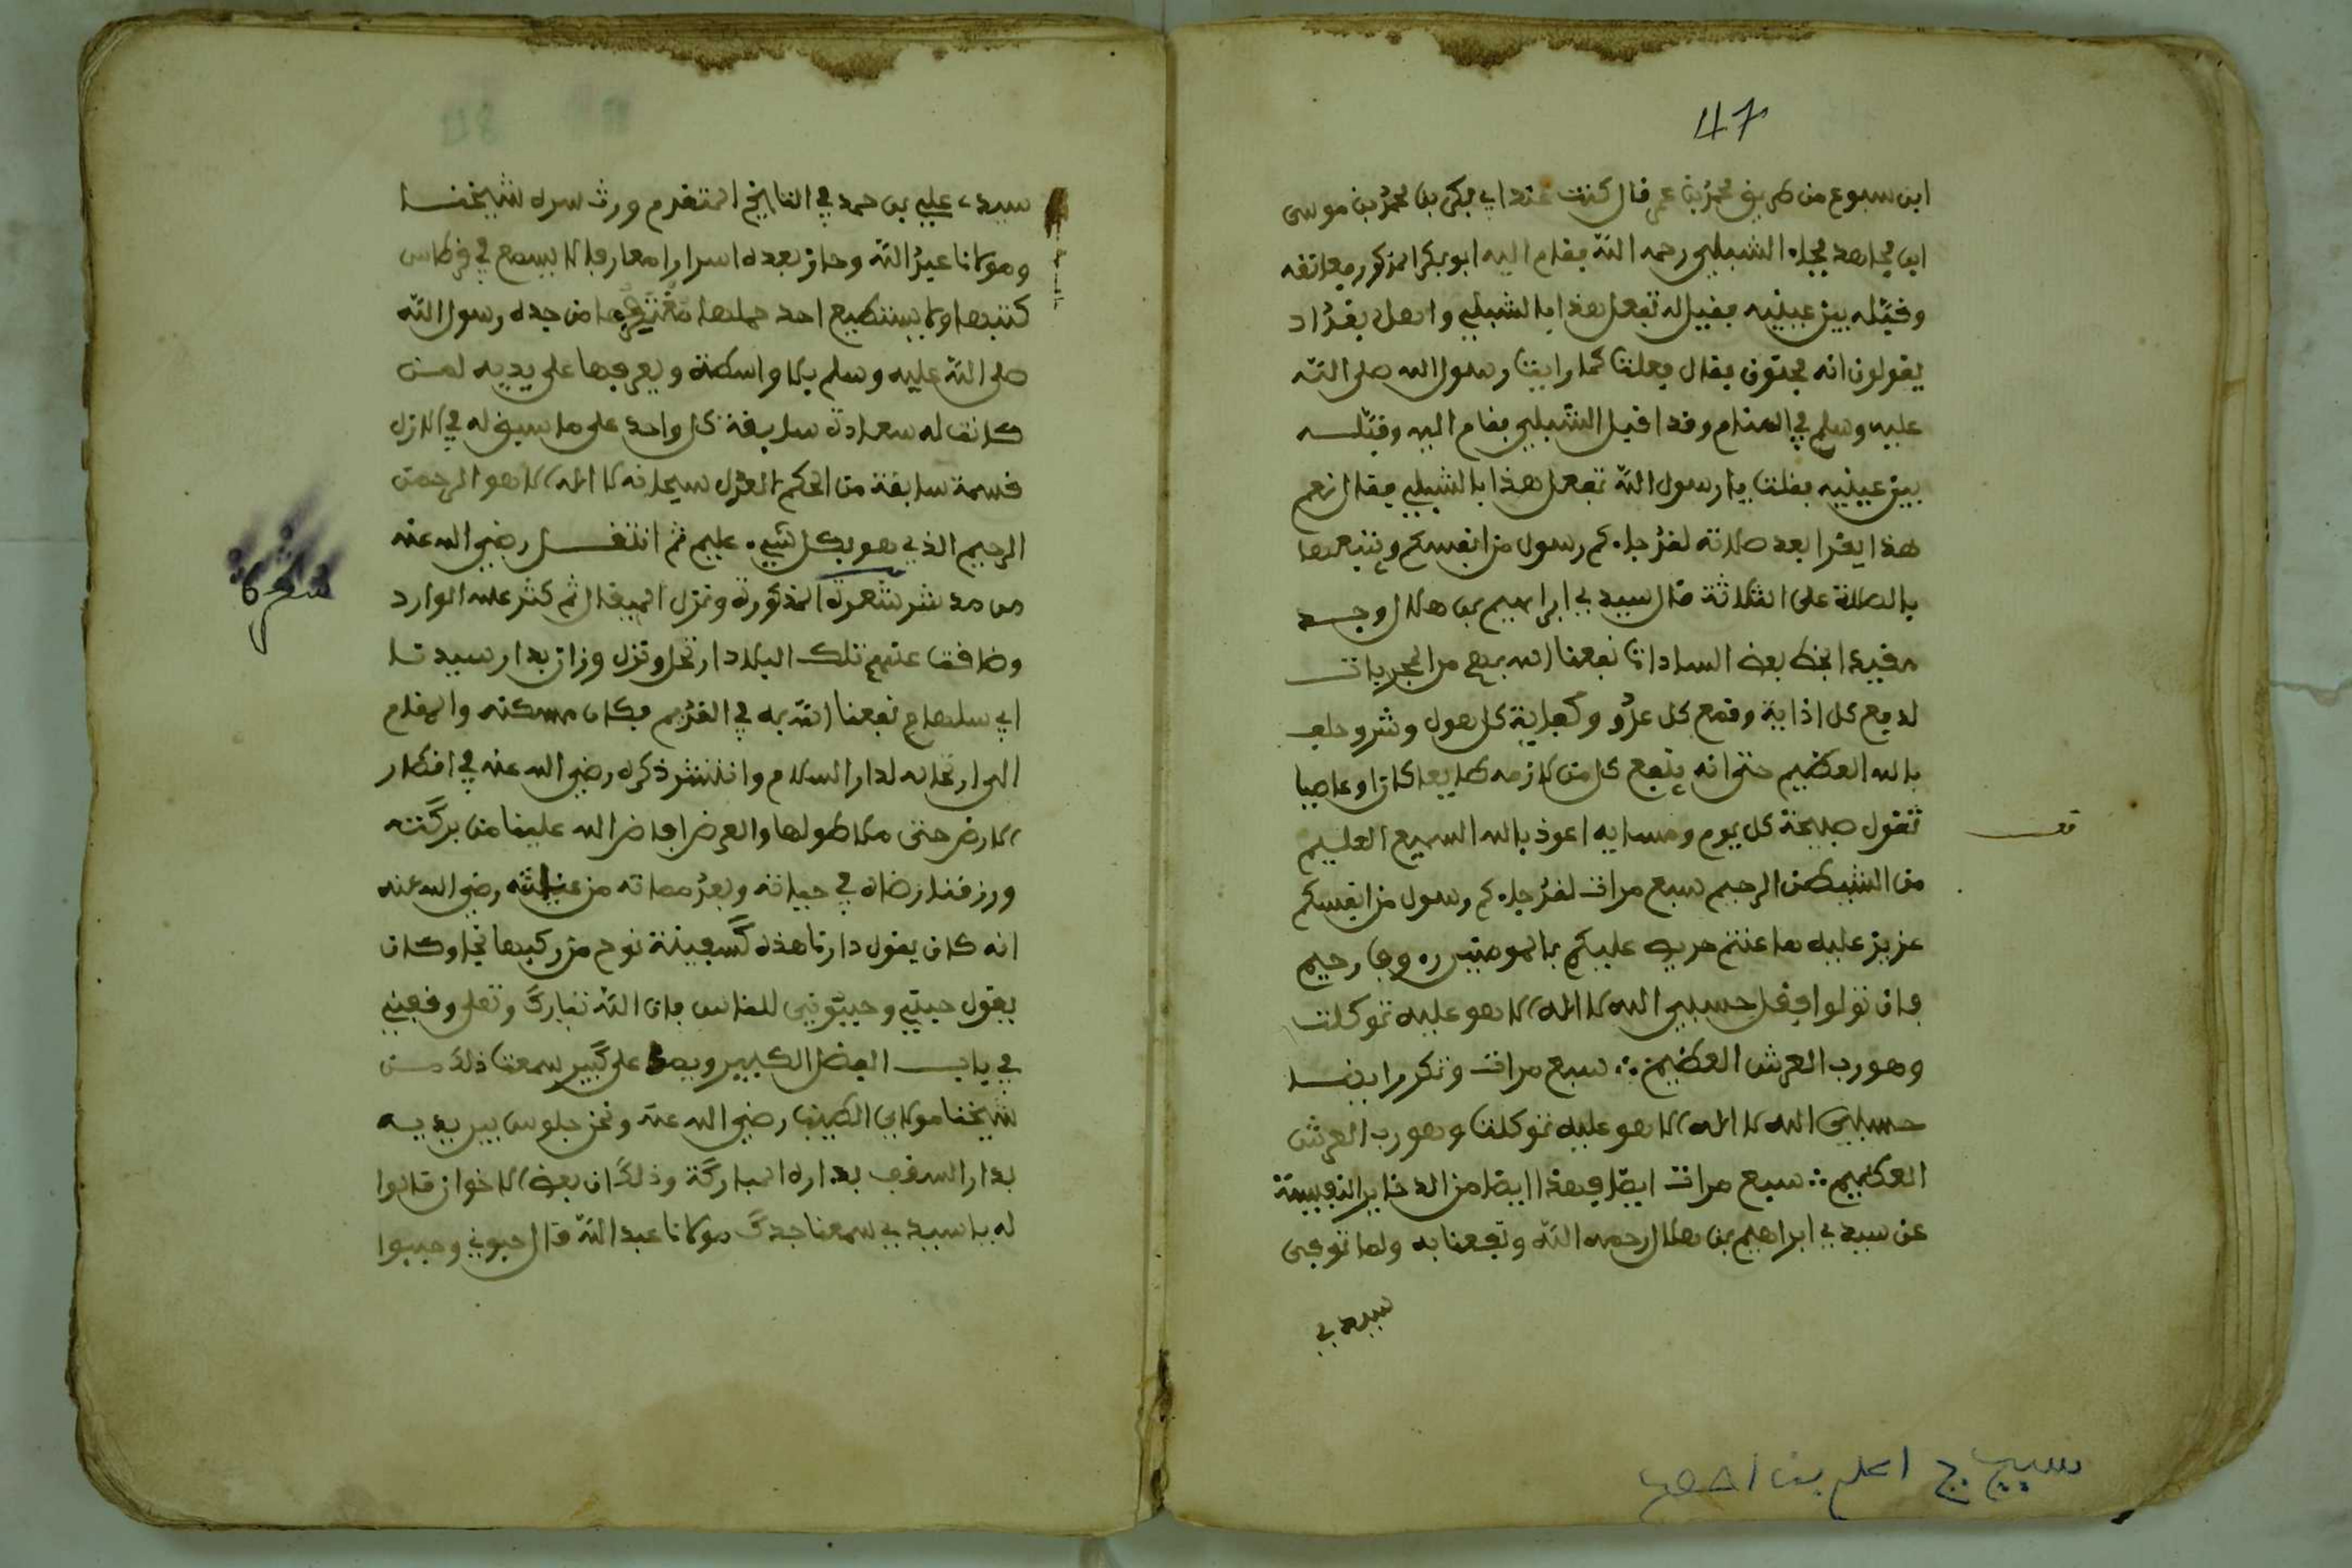 47
ابن سبوع من طريق محمد بن عمر قال كنت عند ابي بكر بن محمد بن موسى
ابن مجاهد فجاء الشبلي رحمه الله فقام اليه ابو بكر المذكور فعانقه
وقبّله بين عينيه فقيل له تفعل هذا بالشبلي واهل بغداد
يقولون انه مجنون فقال فعلت كما رايت رسول الله صلى الله
عليه وسلم في المنام وقد اقبل الشبلي فقام اليه وقبّله
بين عينيه فقلت يا رسول الله تفعل هذا بالشبلي فقال نعم
هذا يقرا بعد صلاته لقد جاءكم رسول من انفسكم ويتبعها
بالصلاة علي الثلاثة قال سيدي ابراهيم بن هلال وجد
مقيدا بخط بعض السادات نفعنا الله بهم من المجربات
لدفع كل اذاية وقمع كل عدو وكفاية كل هول وشر وحلف
بالله العظيم حتى انه ينفع كل من لازمه طايعا كان او عاصيا
تقول صبيحة كل يوم ومسايه اعوذ بالله السميع العليم
من الشيطن الرجيم سبع مرات لقد جاءكم رسول من انفسكم
عزيز عليه ما عنتم حريص عليكم بالمومنين رءوف رحيم
فان تولوا فقل حسبي الله لا اله الا هو عليه توكلت
وهو رب العرش العظيم ∴ سبع مرات وتكرر ايضا
حسبي الله لا اله الا هو عليه توكلت وهو رب العرش
العظيم ∴ سبع مرات ايضا فهذا ايضا من الدخاير النفيسة
عن سيدي ابراهيم بن هلال رحمه الله ونفعنا به ولما توفى
سيدي
قف
سيدي علي بن حمد في التاريخ المتقدم ورث سره شيخنا
ومولانا عبد الله وحاز بعده اسرارا معارف لا يسمع في قرطاس
كتبها ولا يستطيع احد حملها من جده رسول الله
صلى الله عليه وسلم بلا واسطة ويعرفها على يديه لمن
كانت له سعادة سابقة كل واحد على ما سبق له في الازل
قسمة سابقة من الحكم العدل سبحانه لا اله الا هو الرحمن
الرحيم الذي هو بكل شيء عليم ثم انتقل رضي الله عنه
من مدشر شقرة المذكورة ونزل الميقال ثم كثر عليه الوارد
وضاقت عنهم تلك البلاد ارتحل ونزل وزان بدار سيدنا
ابي سلهام نفعنا الله به في القديم فكان مسكنه والمقام
الى ارتحاله لدار السلام وانتشر ذكره رضي الله عنه في اقطار
الارض حتى ملا طولها والعرض افاض الله علينا من بركته
ورزقنا رضاه في حياته وبعد مماته من رضي الله عنه
انه كان يقول دارنا هذه كسفينة نوح من ركبها نجا وكان
يقول حبّني وحببوني للناس فان الله تبارك وتعلى وقفني
في باب الفضل الكبير على كبير سمعت ذلك من
شيخنا مولاي الطيب رضي الله عنه ونحن جلوس بين يديه
بدار السقف بداره المباركة وذلك ان بعض الاخوان قالوا
له يا سيدي سمعنا جدك مولانا عبد الله قال حبوني وحببوا